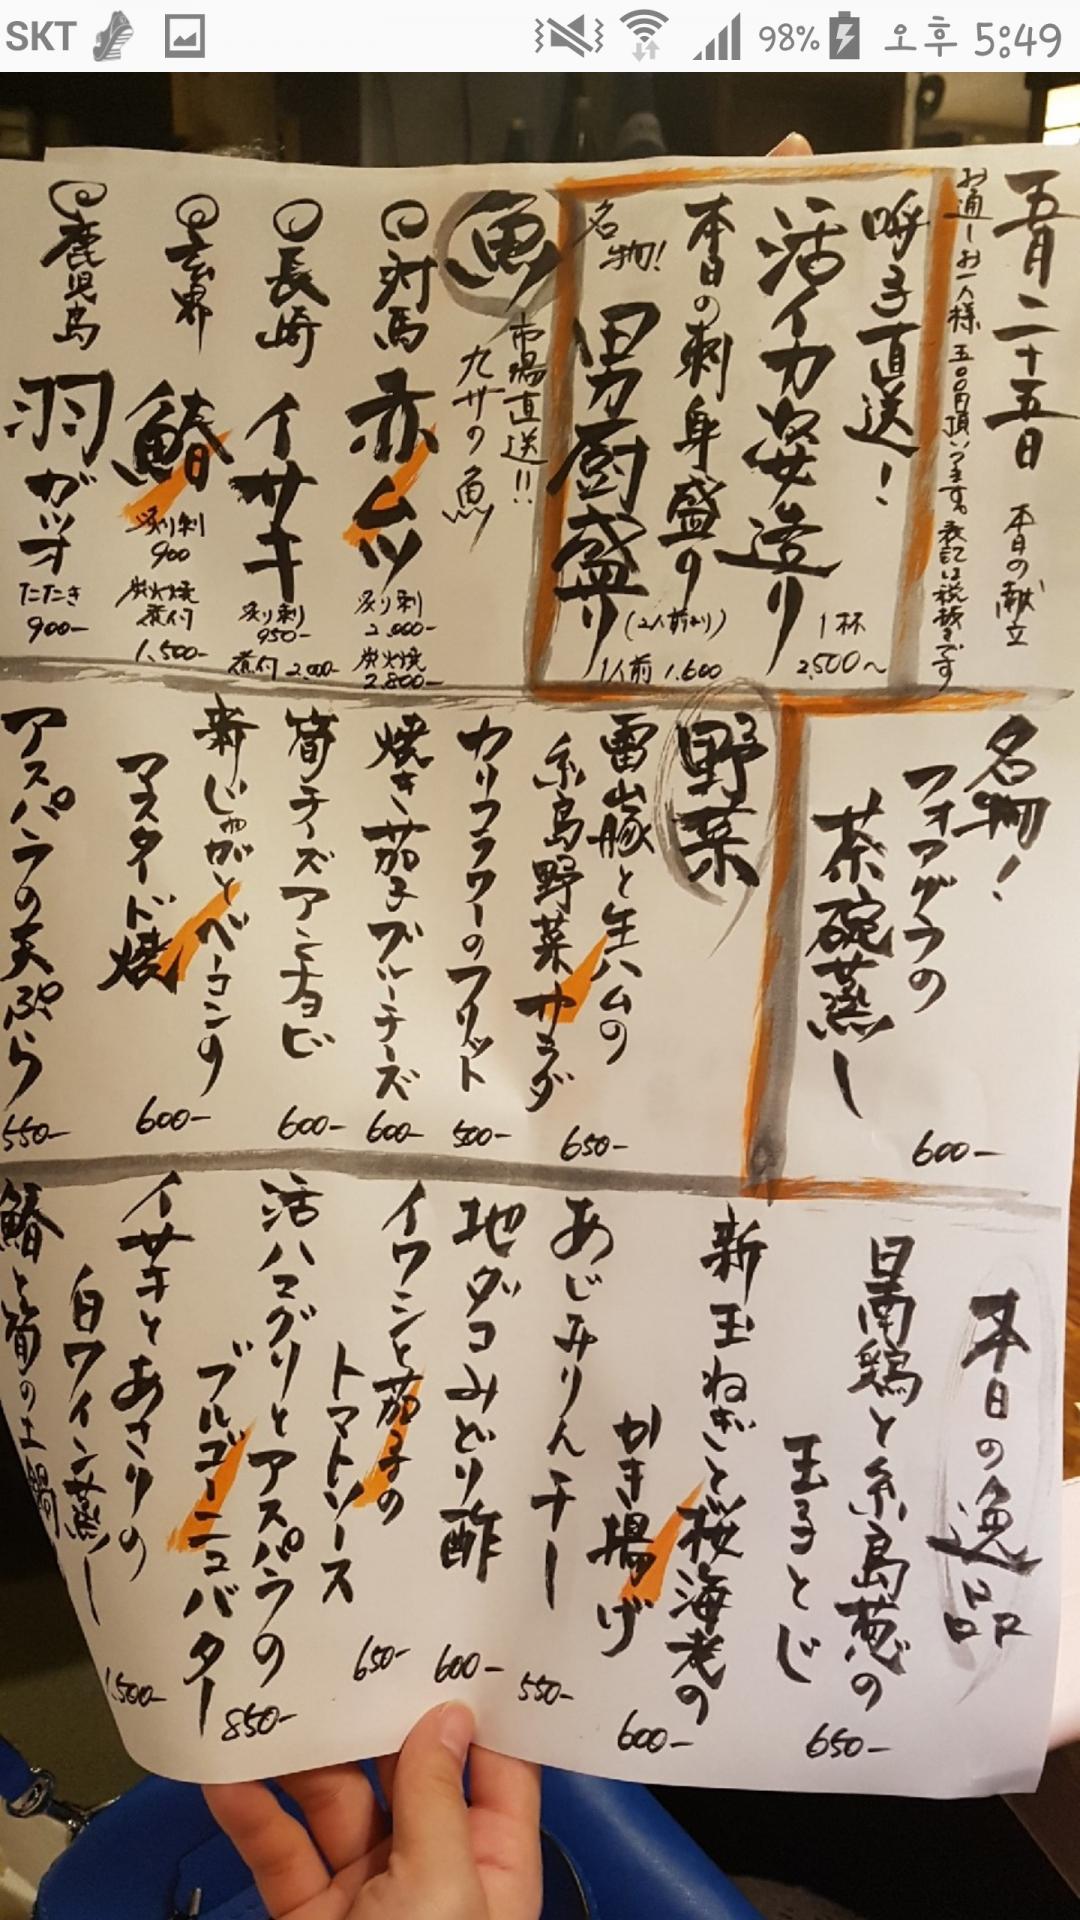 SKT
98%
오후 5:49
五月二十五日 本日の献立
お通しお一人様 五〇〇円頂いてます。表記は税抜きです
呼子直送!
活イカ姿造り
1杯
2,500~
本日の刺身盛り
名物!
男厨盛り
(2人前より)
1人前 1,600
魚
市場直送!!
九州の魚
対馬
赤ムツ
炙り刺
2,000-
炭火焼
2,800-
長崎
イサキ
炙り刺
950-
煮付 2,000-
玄界
鰆
炙り刺
900
炭火焼
煮付
1,500-
鹿児島
羽ガツオ
たたき
900-
名物!
フォアグラの
茶碗蒸し
600-
野菜
雷山豚と生ハムの
糸島野菜サラダ
650-
カリフラワーのフリット
500-
焼き茄子ブルーチーズ
600-
筍チーズアンチョビ
600-
新じゃがとベーコンの
マスタード焼
600-
アスパラの天ぷら
550-
本日の逸品
日南鶏と糸島葱の
玉子とじ
650-
新玉ねぎと桜海老の
かき揚げ
600-
あじみりん干し
550-
地ダコみどり酢
600-
イワシと茄子の
トマトソース
650-
活ハマグリとアスパラの
ブルゴーニュバター
850-
イサキとあさりの
白ワイン蒸し
1,500-
鰆と筍の土鍋